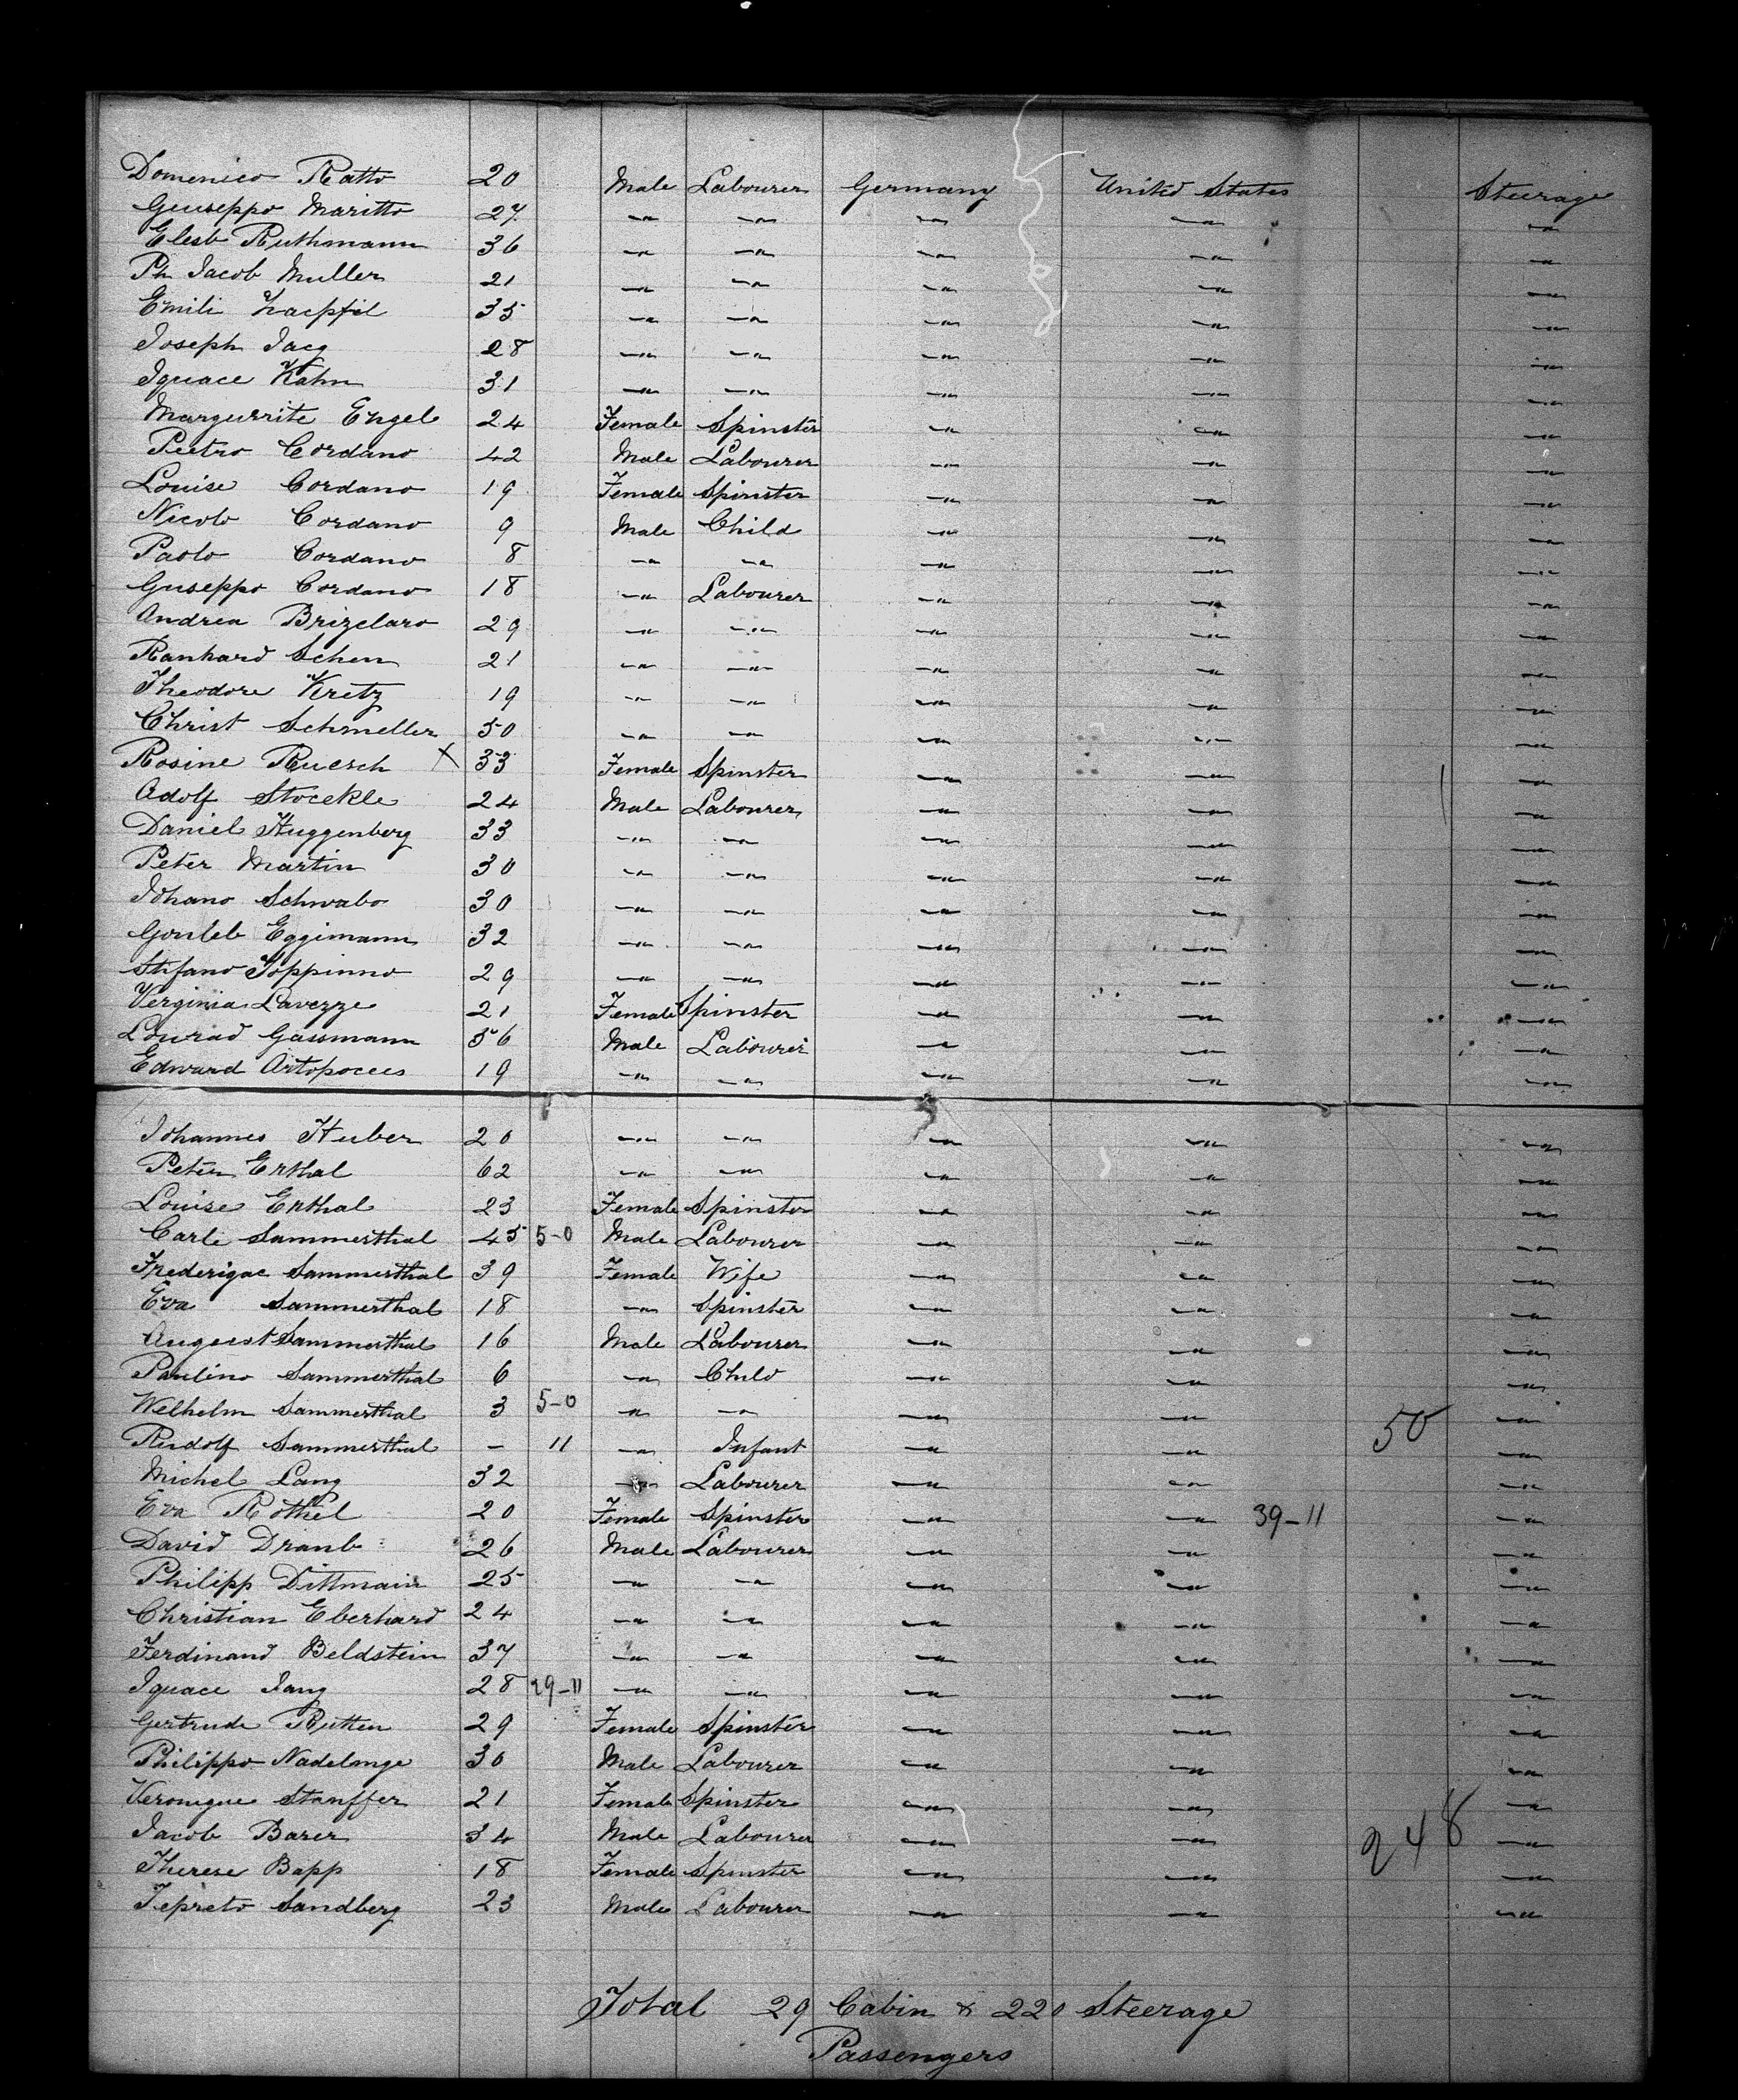 Domenico Ratto 20 Male Labourer Germany United States Steerage
Giuseppo Maritto 27 —"— —"— —"— —"— —"—
Elesb Ruthmann 36 —"— —"— —"— —"— —"—
Ph Jacob Muller 21 —"— —"— —"— —"— —"—
Emili 35 —"— —"— —"— —"— —"—
Joseph Jacq 28 —"— —"— —"— —"— —"—
Ignace Kahn 31 —"— —"— —"— —"— —"—
Marguerrite Engel 24 Female Spinster —"— —"— —"—
Pietro Cordano 42 Male Labourer —"— —"— —"—
Louise Cordano 19 Female Spinster —"— —"— —"—
Nicolo Cordano 9 Male Child —"— —"— —"—
Paolo Cordano 8 —"— —"— —"— —"— —"—
Guseppo Cordano 18 —"— Labourer —"— —"— —"—
Andrea Brizelaro 29 —"— —"— —"— —"— —"—
Ranhard Schen 21 —"— —"— —"— —"— —"—
Theodore Kretz 19 —"— —"— —"— —"— —"—
Christ Schmeller 50 —"— —"— —"— —"— —"—
Rosine Ruesch X 33 Female Spinster —"— —"— —"—
Adolf Stoeckle 24 Male Labourer —"— —"— —"—
Daniel Huggenberg 33 —"— —"— —"— —"— —"—
Peter Martin 30 —"— —"— —"— —"— —"—
Johano Schwabo 30 —"— —"— —"— —"— —"—
Gonleb Eggimann 32 —"— —"— —"— —"— —"—
Stefano Toppinno 29 —"— —"— —"— —"— —"—
Verginia Lavezze 21 Female Spinster —"— —"— —"—
Conrad Gassmann 56 Male Labourer —"— —"— —"—
Edward Artopocus 19 —"— —"— —"— —"— —"—
Johannes Huber 20 —"— —"— —"— —"— —"—
Peter Erthal 62 —"— —"— —"— —"— —"—
Louise Erthal 23 Female Spinster —"— —"— —"—
Carle Sammerthal 45 5-0 Male Labourer —"— —"— —"—
Frederigae Sammerthal 39 Female Wife —"— —"— —"—
Eva Sammerthal 18 —"— Spinster —"— —"— —"—
August Sammerthal 16 Male Labourer —"— —"— —"—
Paulino Sammerthal 6 —"— Child —"— —"— —"—
Welhelm Sammerthal 3 5-0 —"— —"— —"— —"— 50 —"—
Rudolf Sammerthal - 11 —"— Infant —"— —"— —"—
Michel Lang 32 —"— Labourer —"— —"— —"—
Eva Rothel 20 Female Spinster —"— —"— 39-11 —"—
David Dranb 26 Male Labourer —"— —"— —"—
Philipp Dittmain 25 —"— —"— —"— —"— —"—
Christian Eberhard 24 —"— —"— —"— —"— —"—
Ferdinand Beldstein 37 —"— —"— —"— —"— —"—
Ignace Jang 28 29-11 —"— —"— —"— —"— —"—
Gertrude Rutten 29 Female Spinster —"— —"— —"—
Philippo Nadelinge 30 Male Labourer —"— —"— —"—
Veronique Stauffer 21 Female Spinster —"— —"— —"—
Jacob Barer 34 Male Labourer —"— —"— 248 —"—
Therese Bapp 18 Female Spinster —"— —"— —"—
Sandberg 23 Male Labourer —"— —"— —"—
Total 29 Cabin & 220 Steerage
Passengers